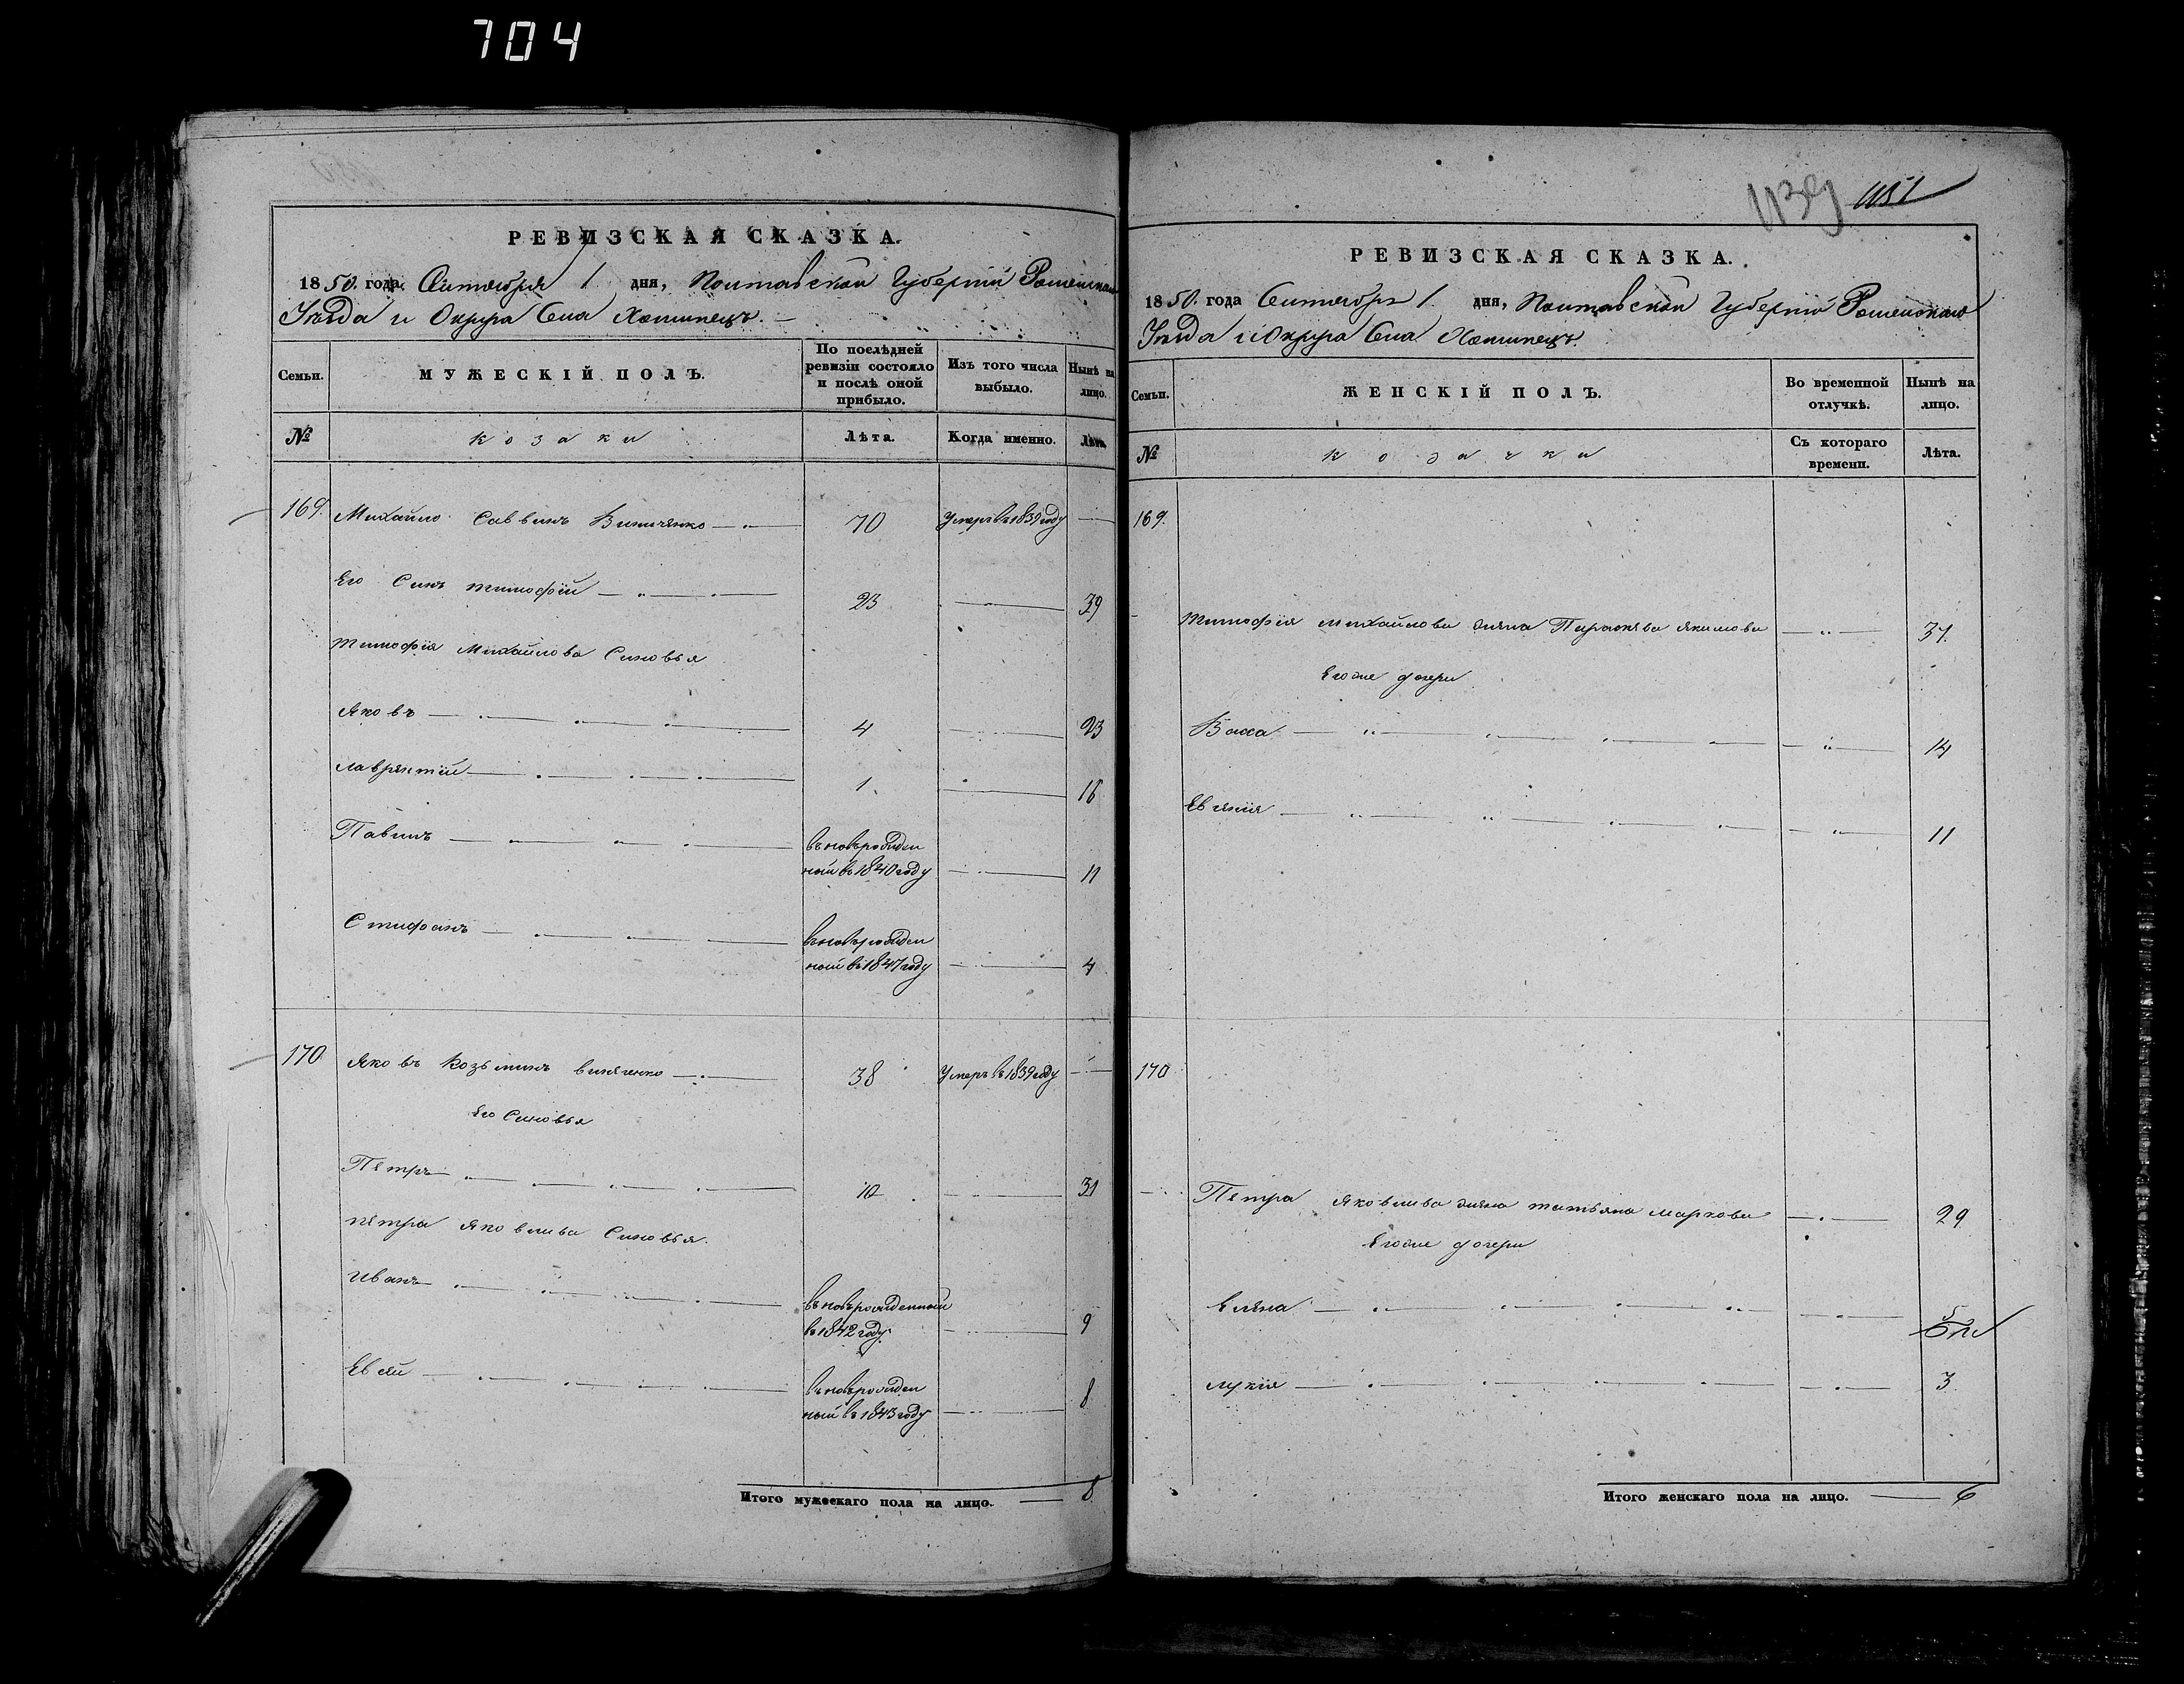 704
РЕВИЗСКАЯ СКАЗКА.
1850. года Сентября 1 дня, Полтавской Губерніи Роменскаго
Уѣзда и Округа Села
Семьи.
МУЖЕСКІЙ ПОЛЪ.
По послѣдней ревизіи состояло и послѣ оной прибыло.
Изъ того числа выбыло.
Нынѣ на лицо.
№
козаки
Лѣта.
Когда именно.
Лѣта.
169. Михайло Саввинъ Виниченко 70 Умеръ въ 1839 году
Его Синъ тимофій 23 39
тимофія Михайлова Синовья
Яковъ 4 23
лаврентій 1 16
Павилъ въновърожден
ной въ 1840 году 11
Стифанъ въновърожден
ной въ 1847 году 4
170 Яковъ Козьминъ виниченко 38 Умеръ въ 1839 году
Его Синовья
Петръ 10 31
петра Яковлива Синовья.
иванъ въновърожденной
въ 1842 году 9
Евсѣй въновърожден
ной въ 1843 году 8
Итого мужескаго пола на лицо. 8
1139 1151
РЕВИЗСКАЯ СКАЗКА.
1850. года Сентября 1. дня, Полтавской Губерніи Роменскаго
Уѣзда и Округа Села
Семьи.
ЖЕНСКІЙ ПОЛЪ.
Во временной отлучкѣ.
Нынѣ на лицо.
№
козачки
Съ котораго времени.
Лѣта.
169.
тимофія михайлова жена Параскева якимова 37.
Егоже дочери
Васса 14
Евгенія 11
170
Петра яковлива жена татьяна маркова 29
Егоже дочери
Елена 5
лукія 3
Итого женскаго пола на лицо. 6